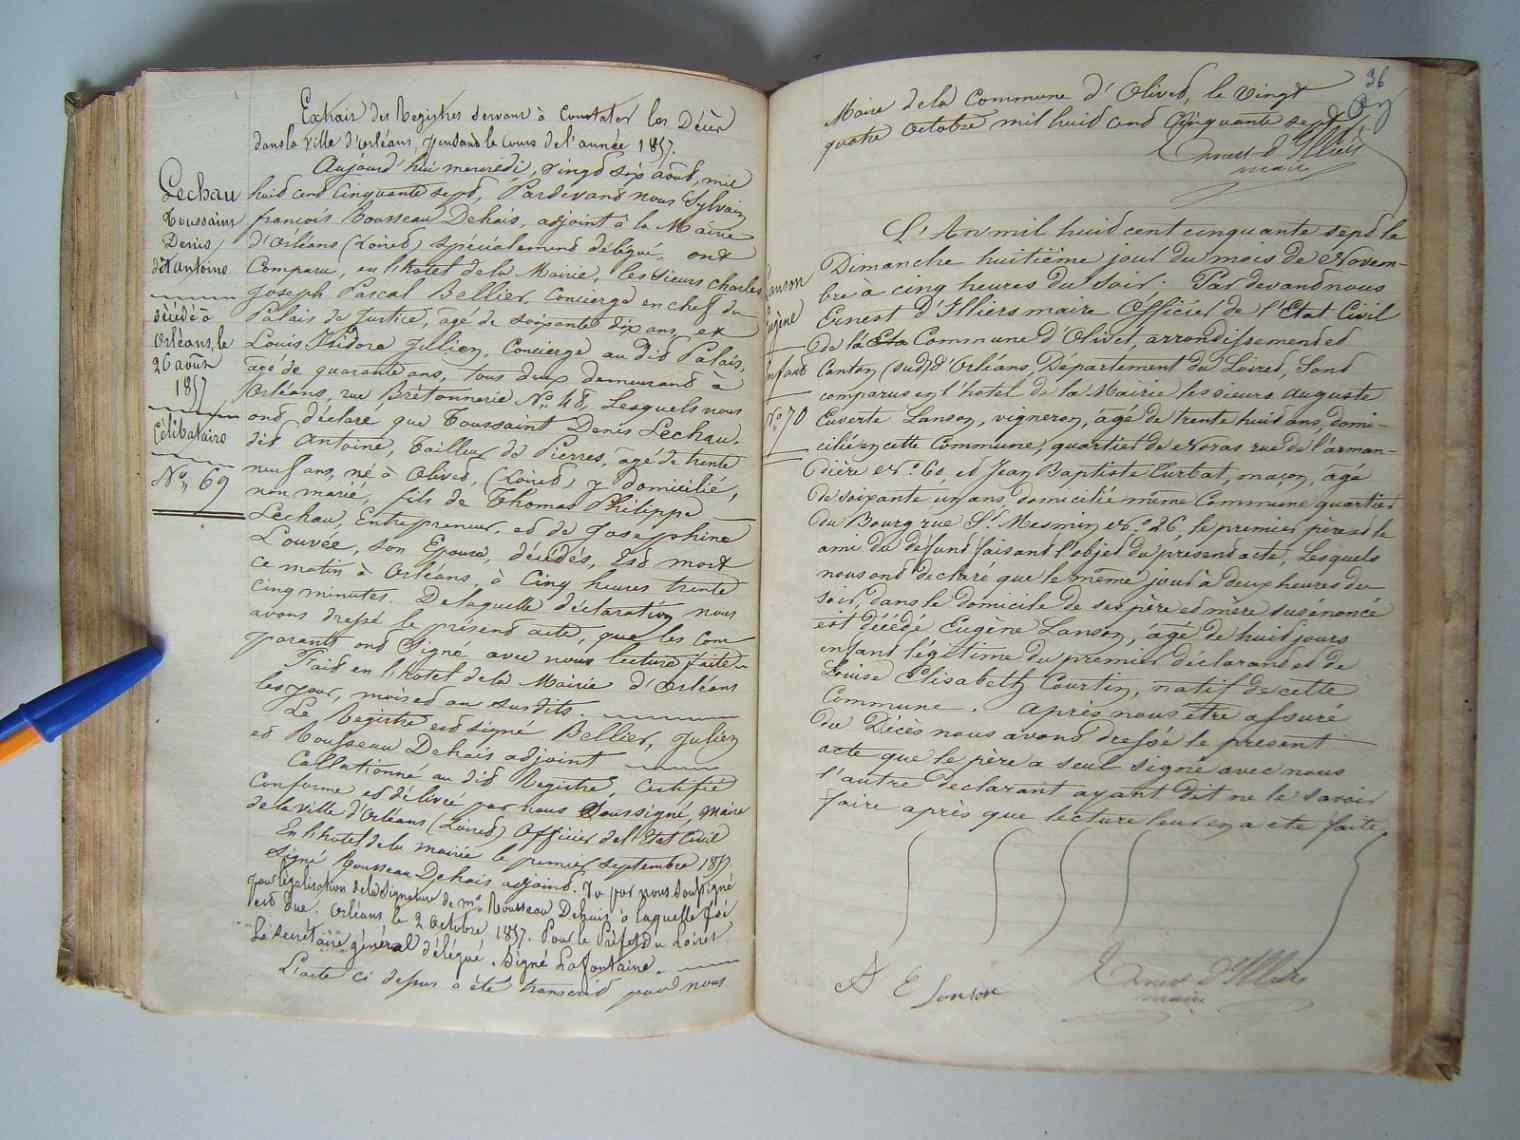 Extrait des Registres servant à Constater les Décès
dans la Ville d'Orléans, pendant le cours de l'année 1857.
Lechau
Toussaint
Denis
dit antoine
décédé à
Orléans, le
26 août
1857
Célibataire
No. 69
Aujourd'hui mercredi, vingt six août, mil
huit cent Cinquante sept, Pardevant nous Sylvain
françois Rousseau Dehais, adjoint à la Mairie
d'Orléans (Loiret) spécialement délégué, ont
Comparu, en l'hotel de la Mairie, les sieurs charles
Joseph Pascal Bellier, Concierge en chef du
Palais de Justice, âgé de soixante dix ans, et
Louis Isidore Jullien, Concierge au dit Palais,
âgé de quarante ans, tous deux demeurant à
Orléans, rue Brétonnerie No. 48, Lesquels nous
ont déclaré que Toussaint Denis Lechau,
dit Antoine, Tailleur de Pierres, âgé de trente
neuf ans, né à Olivet, (Loiret) y domicilié,
non marié, fils de Thomas Philippe
Lechau, Entrepreneur, et de Josephine
Louvée, son Epouse, décédés, Est mort
ce matin à Orléans, à Cinq heures trente
cinq minutes. De laquelle déclaration nous
avons dressé le présent acte, que les Com
parants ont signé avec nous lecture faite
Fait en l'hotel de la Mairie d'Orléans
les jour, mois et an susdits
Le Registre est signé Bellier, Julien
et Rousseau Dehais adjoint
Collationné au dit Registre, Certifié
Conforme et délivré par nous Soussigné, Maire
de la ville d'Orléans (Loiret) Officier de l'Etat Civil
En l'hotel de la mairie le premier septembre 1857.
Signé Rousseau Dehais adjoint. Vu par nous Soussigné
pour légalisation de la Signature de mr. Rousseau Dehais à laquelle foi
est due. Orléans le 2 Octobre 1857. Pour le Préfet du Loiret
Le secrétaire général délégué. Signé Lafontaine.
L'acte ci dessus a été transcrit par nous
36
Maire de la Commune d'Olivet, le Vingt
quatre Octobre mil huit cent Cinquante sept
Ernest d'Illiers
maire
Lanson
Eugène
enfant
No. 70
L'An mil huit cent cinquante sept le
Dimanche huitième jour du mois de Novem-
bre à cinq heures du soir. Pardevant nous
Ernest D'Illiers maire Officier de l'Etat Civil
de la Eta Commune d'Olivet, arrondissement et
Canton (sud) d'Orléans, Département du Loiret, Sont
comparus en l'hotel de la Mairie les sieurs auguste
Euverte Lanson, vigneron, âgé de trente huit ans, domi-
cilié en cette Commune, quartier de Noras rue de l'arman-
dière No. 60, et Jean Baptiste Turbat, maçon, âgé
de soixante un ans domicilié même Commune quartier
du Bourg rue St. Mesmin No. 26, le premier père et le
ami du défunt faisant l'objet du present acte, Lesquels
nous ont declaré que le même jour à deux heures du
soir, dans le domicile de ses père et mère susénoncé
est décédé Eugène Lanson, âgé de huit jours
enfant légitime du premier déclarant et de
Louise Elisabeth Courtin, natif de cette
Commune. Après nous être assuré
du Décès nous avons dressé le présent
acte que le père a seul signé avec nous
l'autre declarant ayant dit ne le savoir
faire après que lecture leur en a été faite.
A E Lanson
Ernest d'Illiers
maire